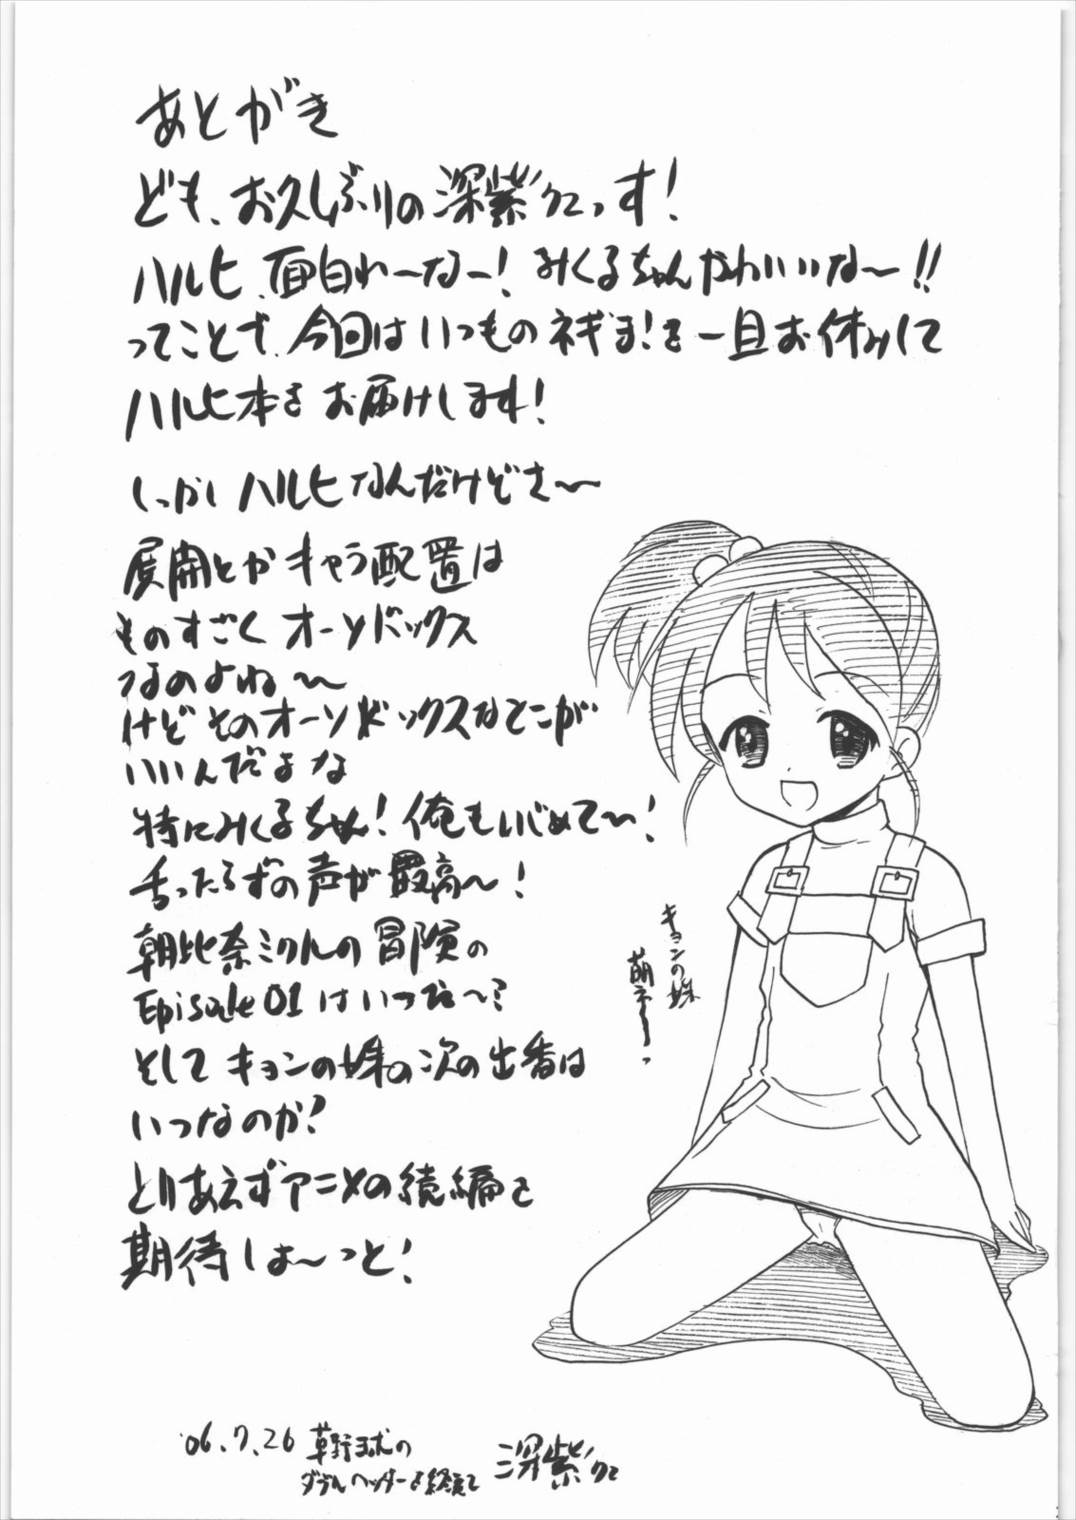 あとがき
ども、お久しぶりの深紫クzっす!
ハルヒ、面白れーなー!みくるちゃんかわいいな〜!!
ってことで、今回はいつものネギま!を一旦お休みして
ハルヒ本をお届けします!
しっかしハルヒなんだけどさ〜
展開とかキャラ配置は
ものすごくオーソドックス
なのよね〜
けどそのオーソドックスなとこが
いいんだよな
特にみくるちゃん!俺もいじめて〜!
舌ったらずの声が最高〜!
朝比奈ミクルの冒険の
Episode 01はいつだ〜?
そしてキョンの妹の次の出番は
いつなのか?
とりあえずアニメの続編を
期待しよ〜っと!
キョンの妹
萌えー
'06.7.26 草野球の
ダブルヘッダーを終えて
深紫